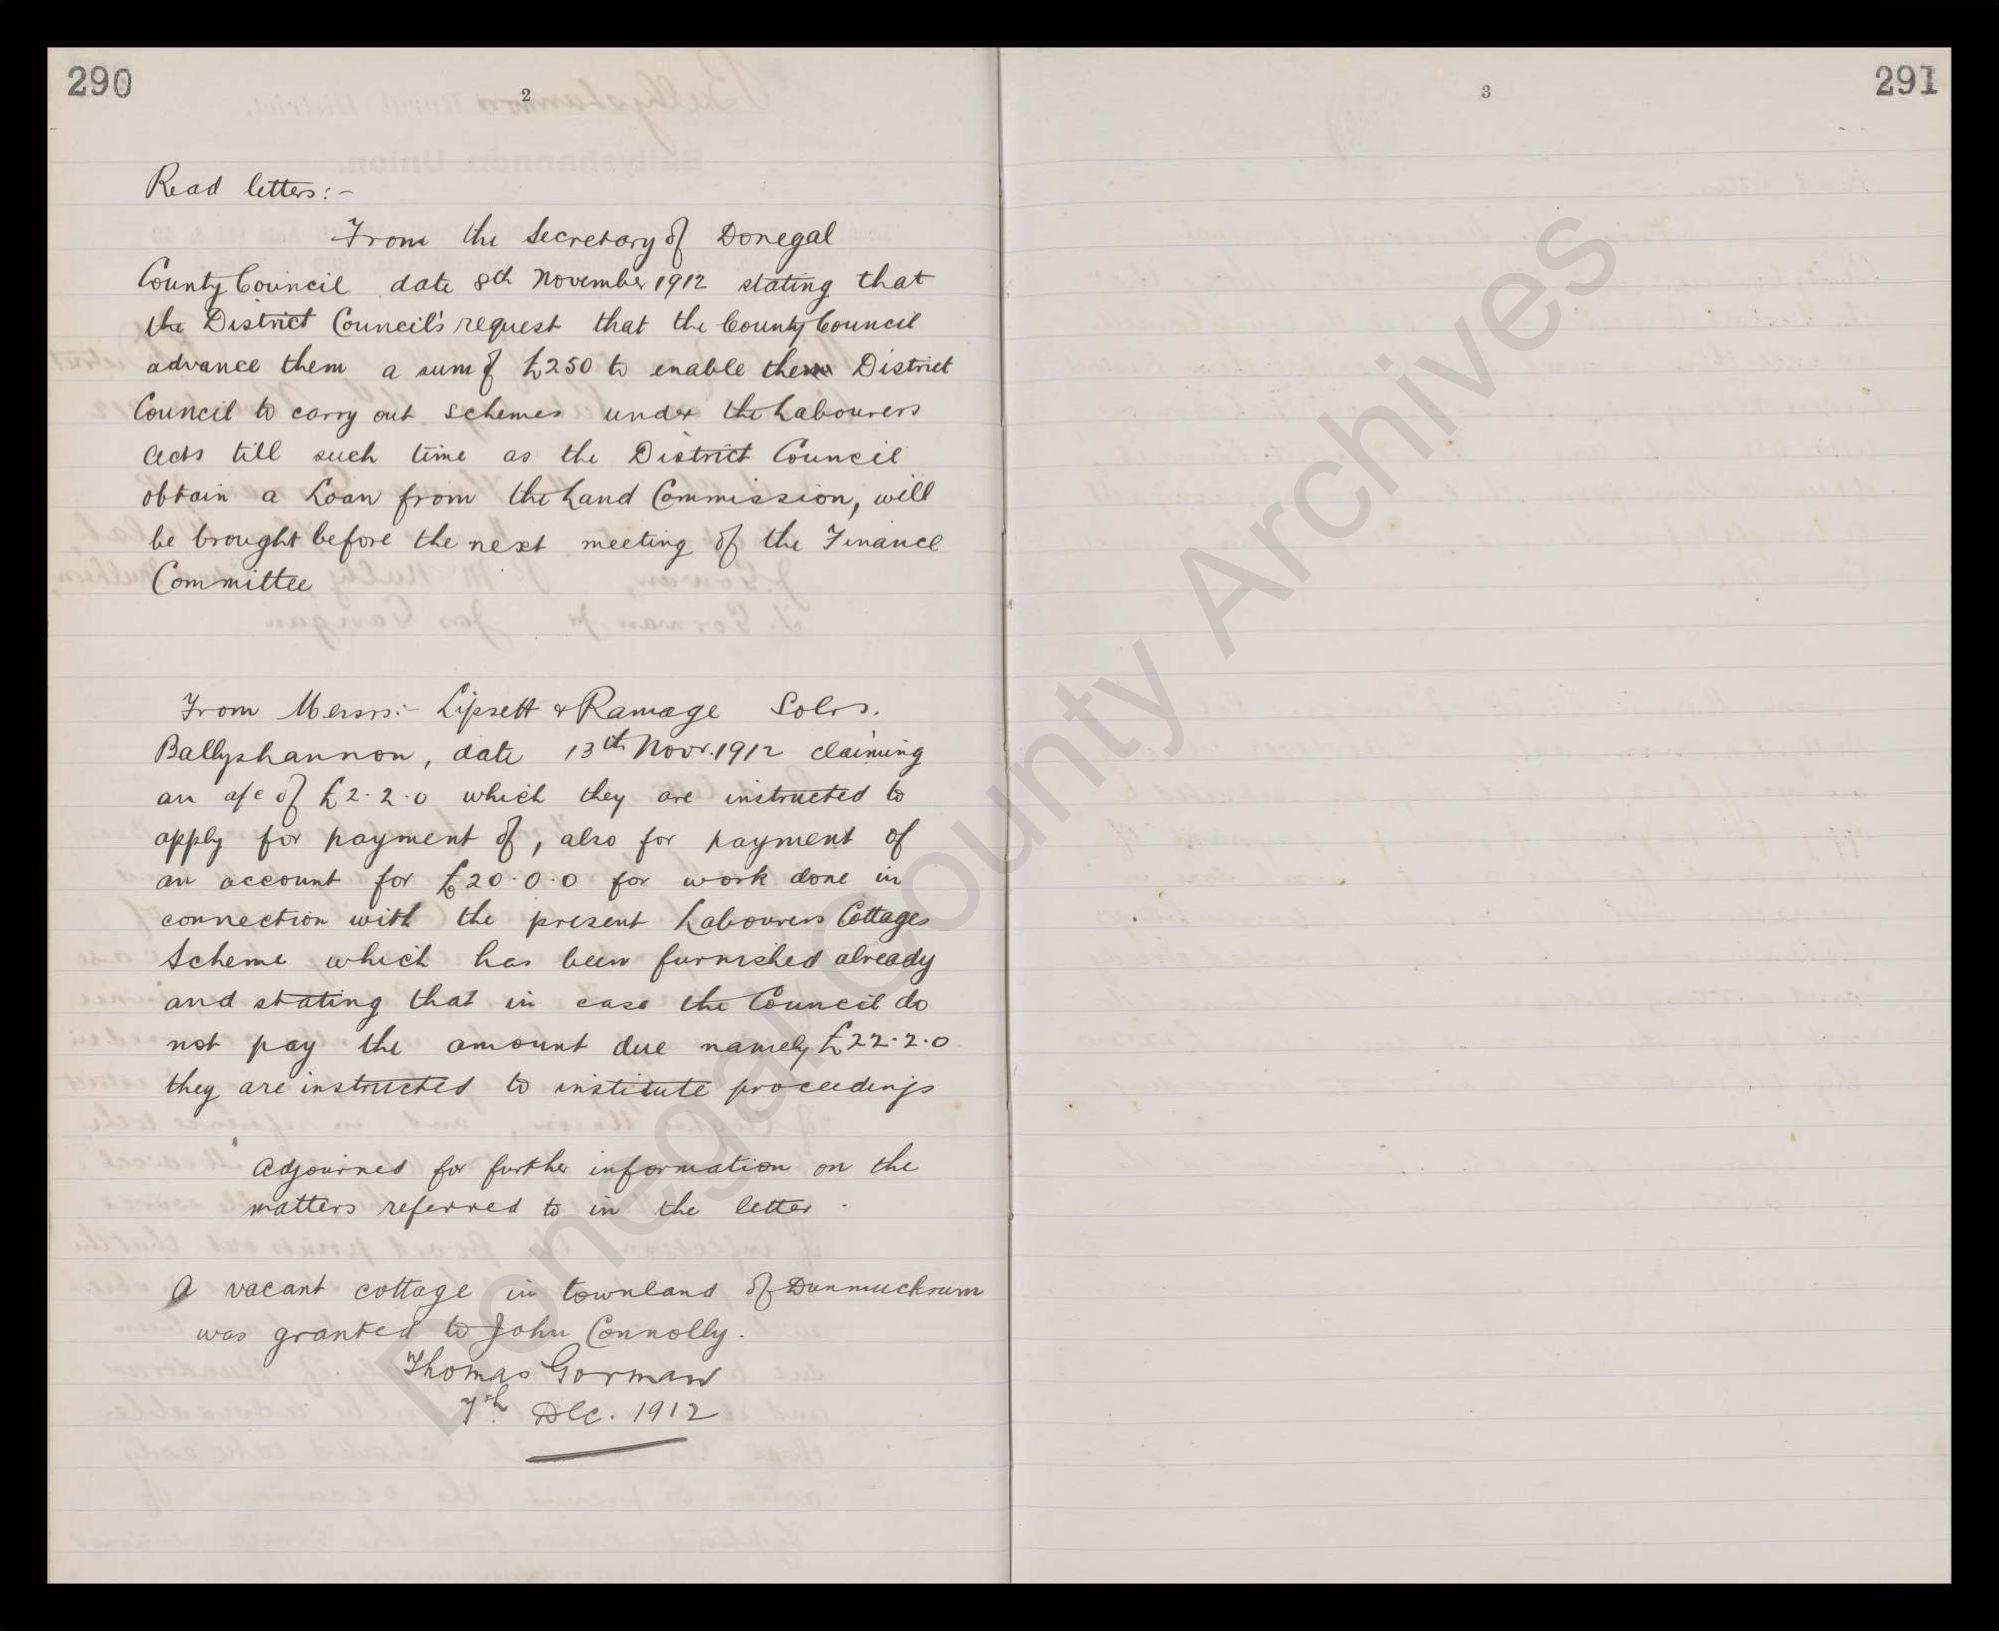 290
2
Read letters:-
From the Secretary of Donegal
County Council date 8th November 1912 stating that
the District Council's request that the County Council
advance them a sum of £250 to enable them District
Council to carry out schemes under the Labourers
Acts till such time as the District Council
obtain a Loan from the Land Commission, will
be brought before the next meeting of the Finance
Committee
From Messrs:- Lipsett & Ramage Solrs.
Ballyshannon, date 13th Novr. 1912 claiming
an a/c of £2.2.0 which they are instructed to
apply for payment of, also for payment of
an account for £20.0.0 for work done in
connection with the present Labourers Cottages
Scheme which has been furnished already
and stating that in case the Council do
not pay the amount due namely £22.2.0
they are instructed to institute proceedings
Adjourned for further information on the
matters referred to in the letter.
A vacant cottage in townland of Dunmuckrum
was granted to John Connolly.
Thomas Gorman
7th Dec. 1912
3
291
Donegal County Archives